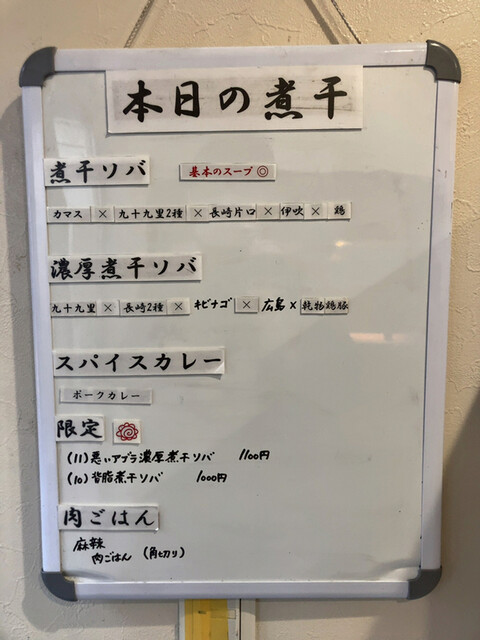 本日の煮干
煮干ソバ 基本のスープ◎
カマス × 九十九里2種 × 長崎片口 × 伊吹 × 鶏
濃厚煮干ソバ
九十九里 × 長崎2種 × キビナゴ × 広島 × 乾物鶏豚
スパイスカレー
ポークカレー
限定
(11)悪いアブラ濃厚煮干ソバ 1100円
(10)背脂煮干ソバ 1000円
肉ごはん
麻辣
肉ごはん (角切り)